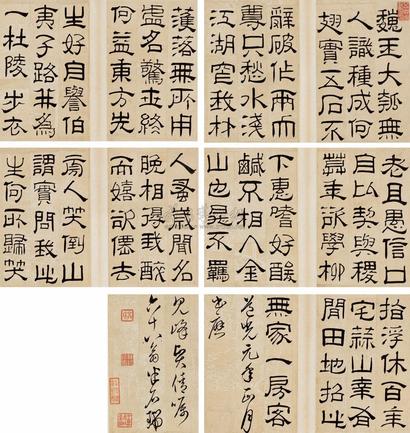 魏王大瓠無
人識種成何
翅實五石不
辭破作兩而
尊只愁水淺
江湖窄我朴
濩落無所用
虛名驚世終
何益東方先
生好自譽伯
夷子路并為
一杜陵布衣
老且愚信口
自比契與稷
莫年欲學柳
下惠嗜好酸
鹹不相入金
山也是不羈
人蚤歲聞名
晚相得我醉
而嬉欲僊去
旁人笑倒山
謂實問我此
生何所歸笑
指浮休百年
宅蒜山幸有
閒田地招此
無家一房客
道光元年正月
書應
見峰
六十八翁